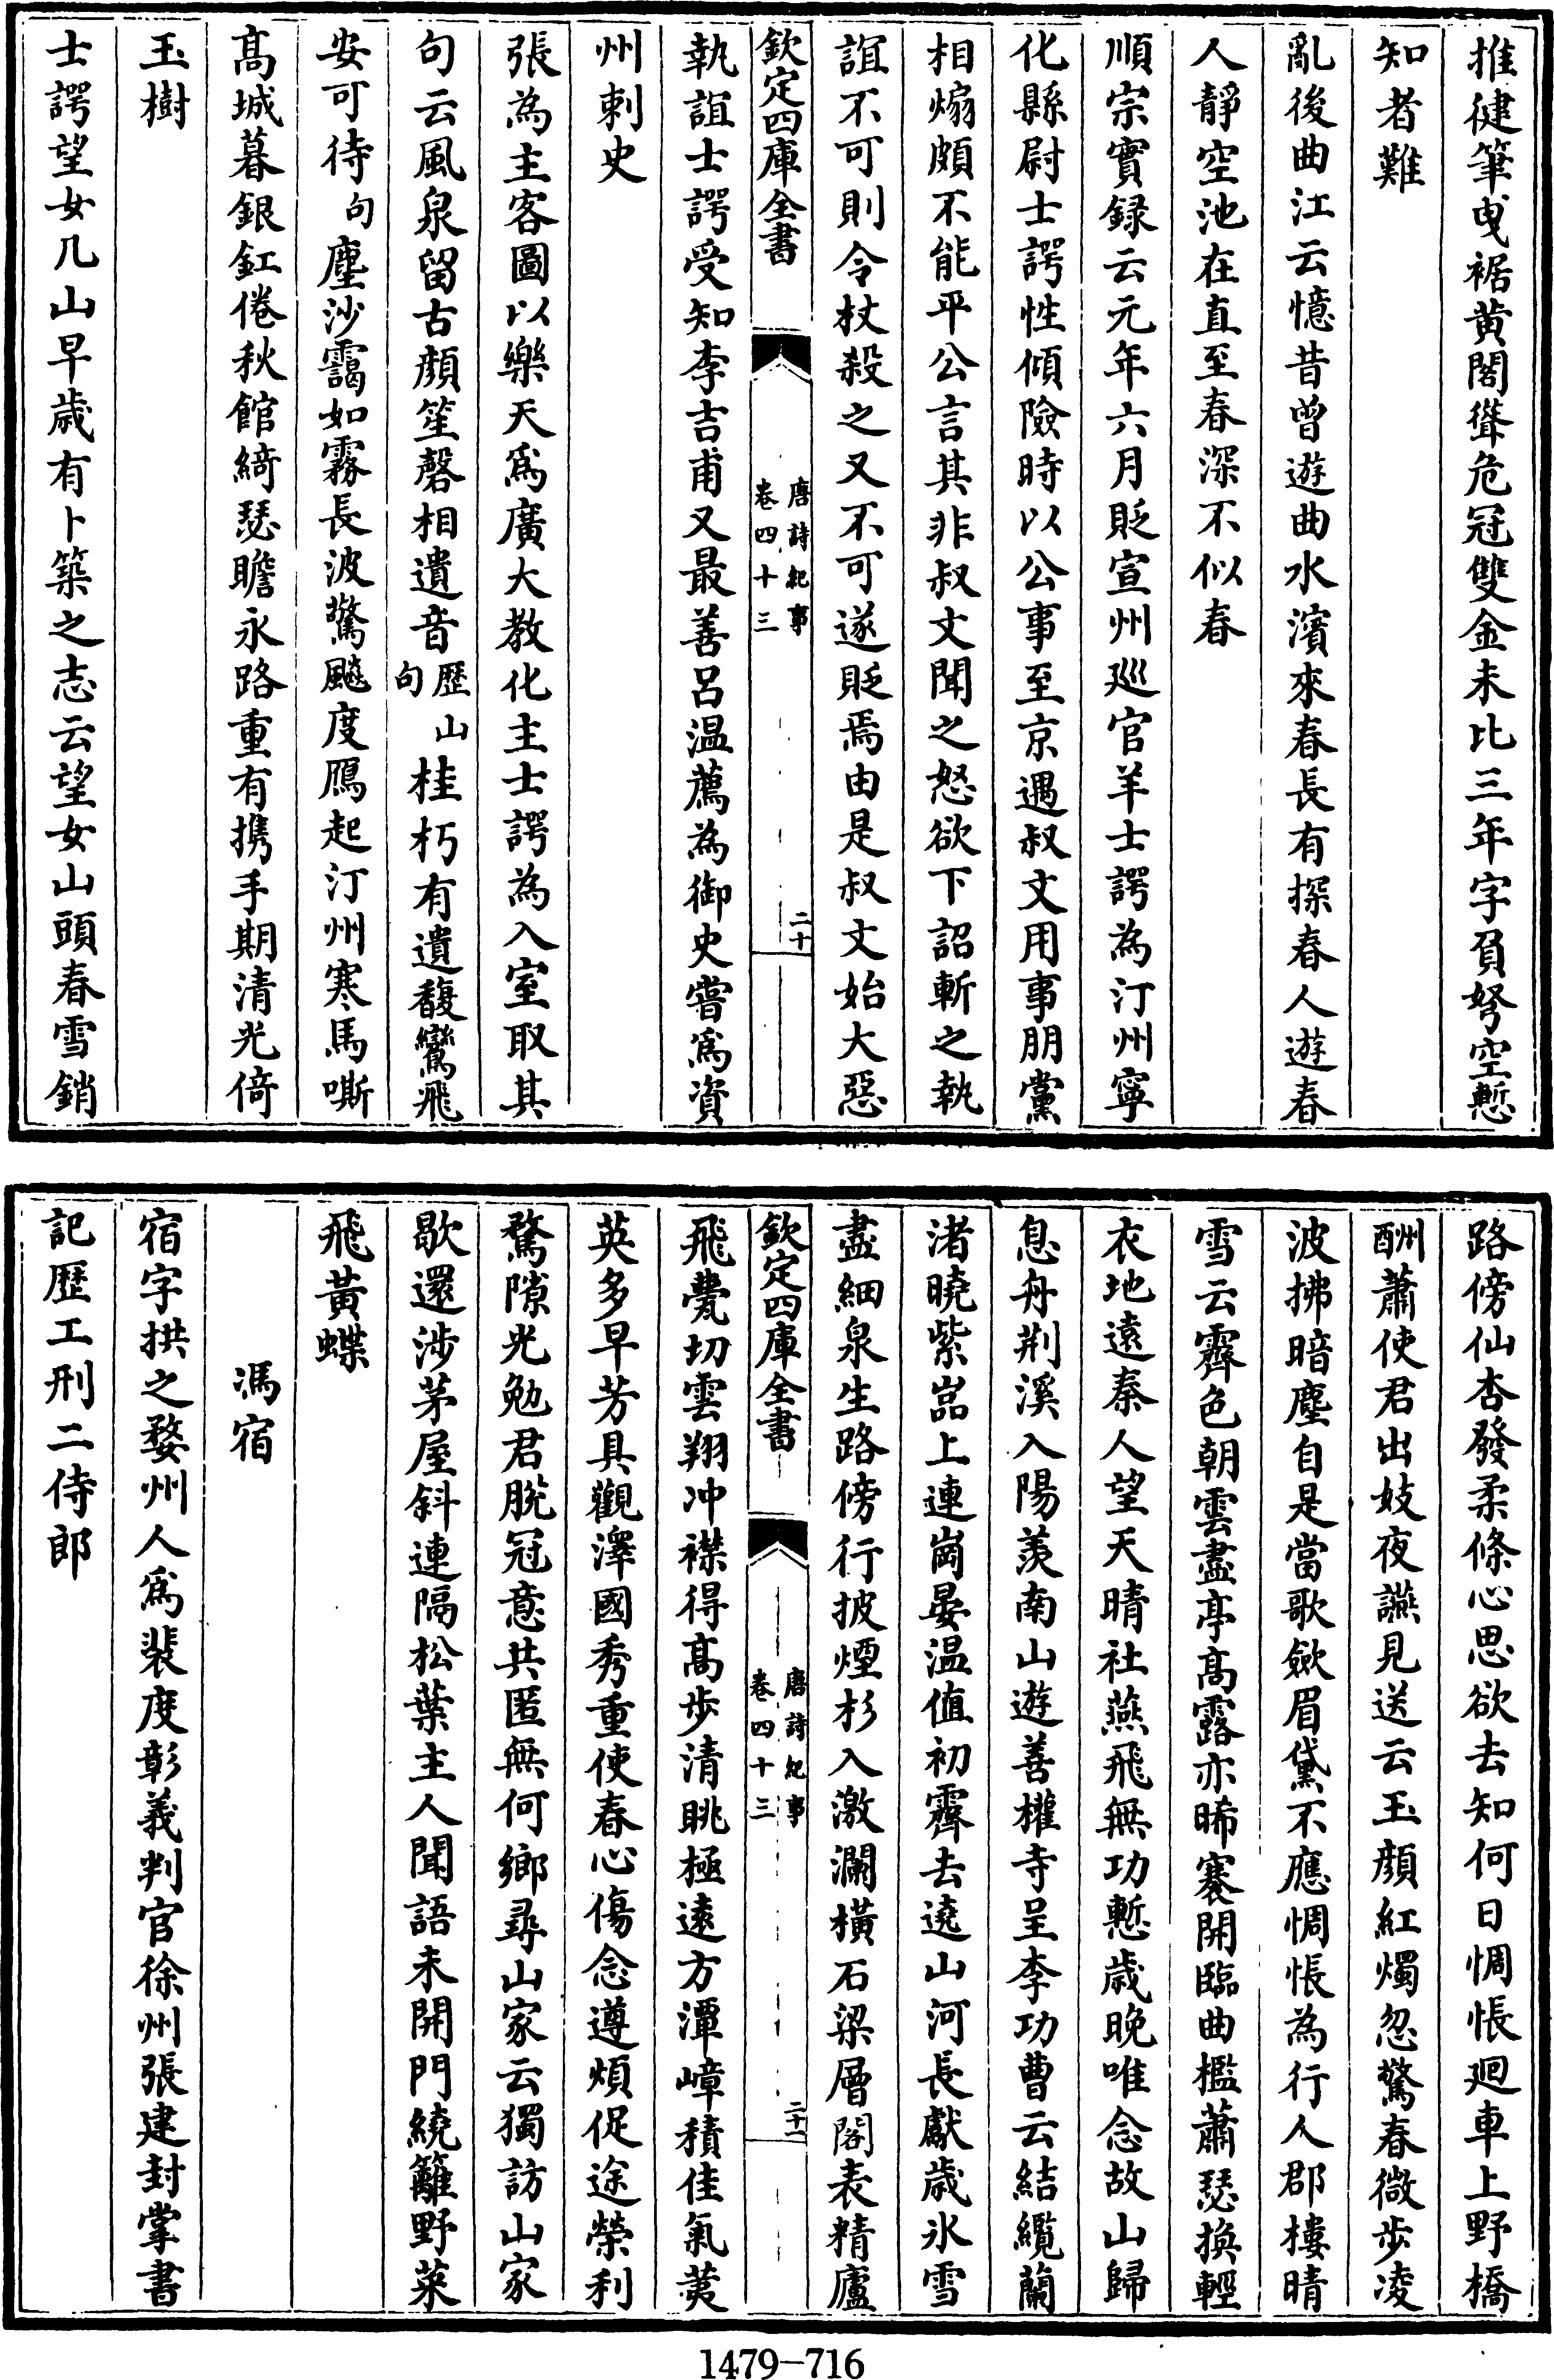 推健筆曵裾黄閣聳危冠雙金未比三年字負弩空慙
知者難
亂後曲江云憶昔曽遊曲水濱來春長有探春人遊春
人靜空池在直至春深不似春
順宗實録云元年六月貶宣州廵官羊士諤為汀州寧
化縣尉士諤性傾險時以公事至京遇叔文用事朋黨
相煽頗不能平公言其非叔文聞之怒欲下詔斬之執
誼不可則令杖殺之又不可遂貶焉由是叔文始大惡
欽定四庫全書
唐詩紀事
卷四十三
二十
執誼士諤受知李吉甫又最善呂温薦為御史嘗爲資
州刺史
張為主客圖以樂天爲廣大教化主士諤為入室取其
句云風泉留古顔笙磬相遺音歴山句桂朽有遺馥鸞飛
安可待句塵沙靄如霧長波驚飈度鴈起汀州寒馬嘶
髙城暮銀釭倦秋館綺瑟瞻永路重有携手期清光倚
玉樹
士諤望女几山早歳有卜築之志云望女山頭春雪銷
路傍仙杏發柔條心思欲去知何日惆悵廻車上野橋
酬蕭使君出妓夜讌見送云玉顔紅燭忽驚春微歩凌
波拂暗塵自是當歌斂眉黛不應惆悵為行人郡樓晴
雪云霽色朝雲盡亭髙露亦晞褰開臨曲檻蕭瑟換輕
衣地遠秦人望天晴社燕飛無功慙歳晚唯念故山歸
息舟荆溪入陽羨南山遊善權寺呈李功曹云結纜蘭
渚曉紫嵒上連崗晏温值初霽去遶山河長獻歳氷雪
盡細泉生路傍行披煙杉入激瀾横石梁層閣表精廬
欽定四庫全書
唐詩紀事
卷四十三
二十一
飛甍切雲翔冲襟得髙歩清眺極逺方潭嶂積佳氣荑
英多早芳具觀澤國秀重使春心傷念遵煩促途榮利
騖隙光勉君脫冠意共匿無何鄉尋山家云獨訪山家
歇還涉茅屋斜連隔松葉主人聞語未開門繞籬野菜
飛黄蝶
馮宿
宿字拱之婺州人爲裴度彰義判官徐州張建封掌書
記歴工刑二侍郎
1479—716